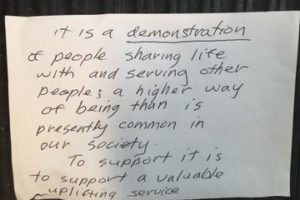 it is a demonstration
of people sharing life
with and serving other
people; a higher way
of being than is
presently common in
our society.
To support it is
to support a valuable
uplifting service